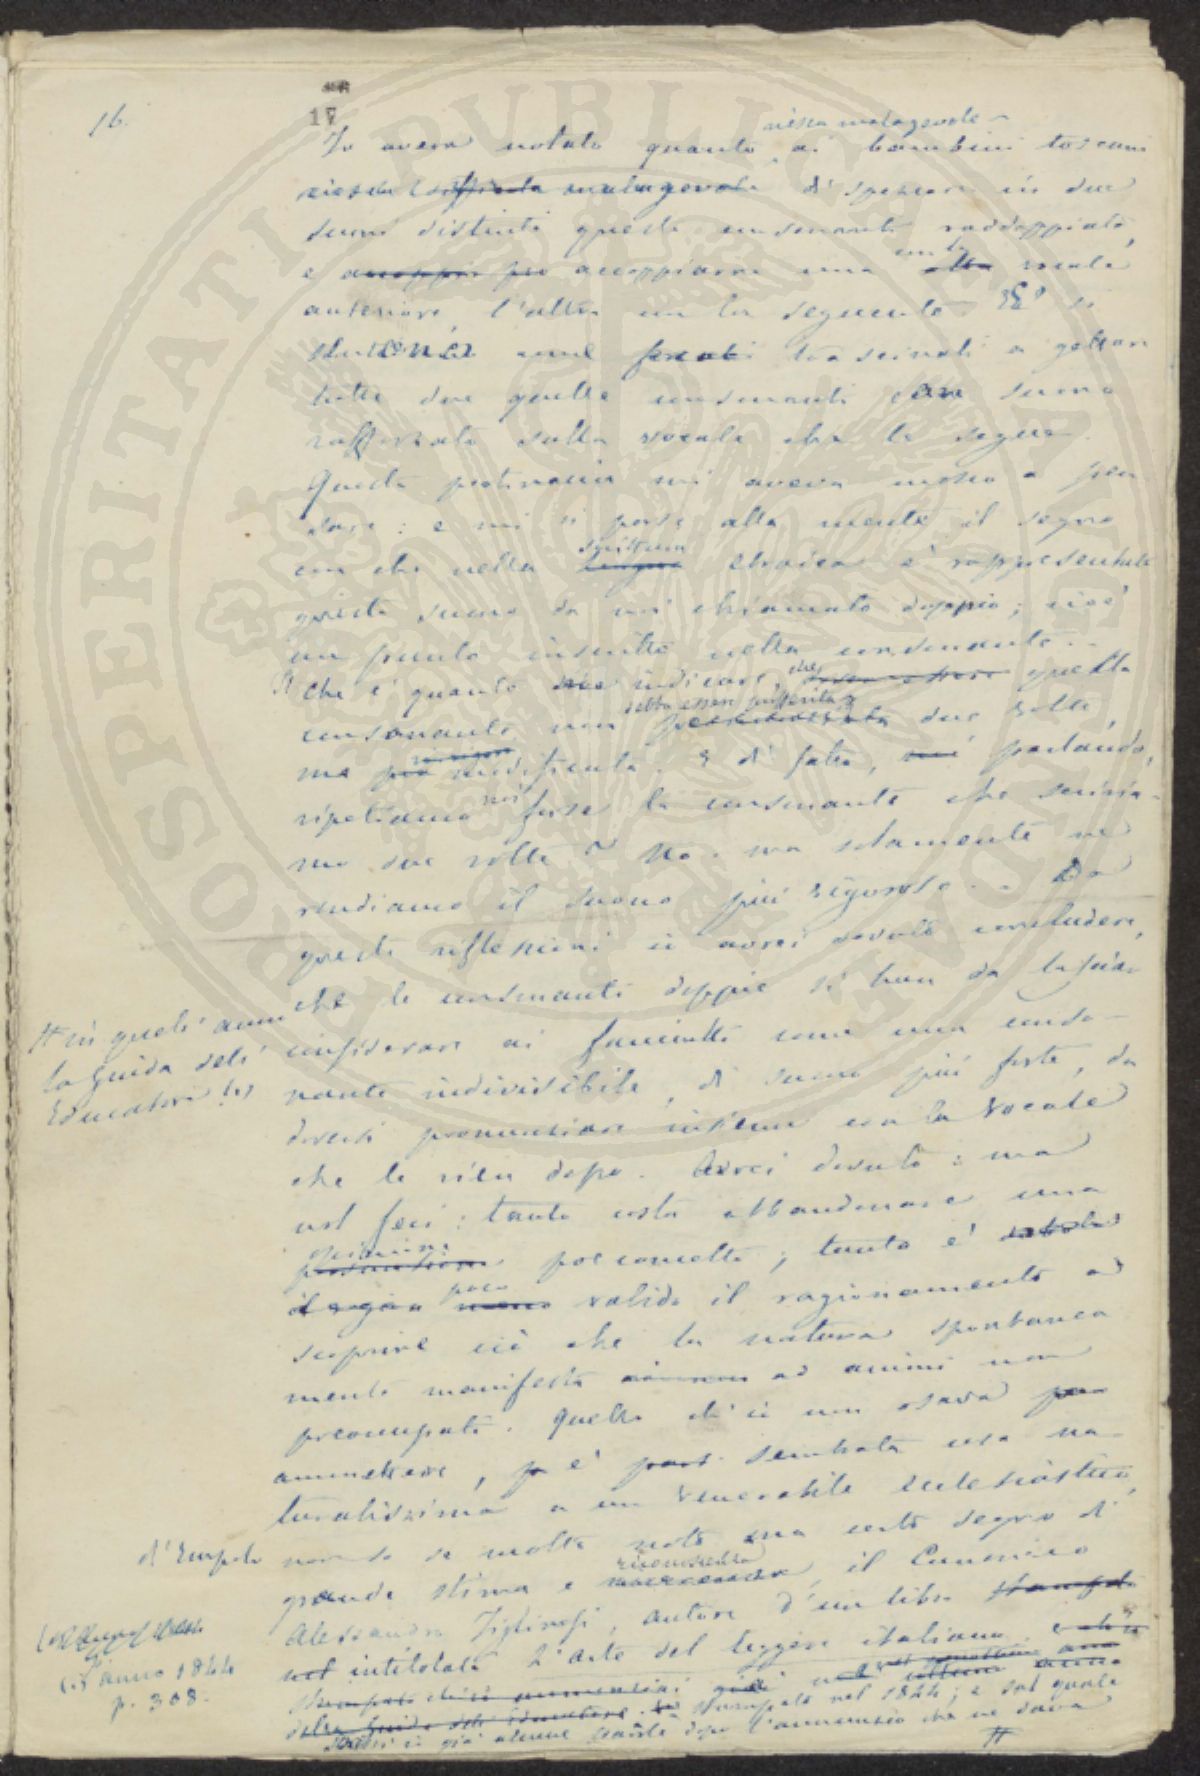 16.
17
riesca malagevole
Io aveva notato quanto ai bambini toscani
riesca malagevole di spezzare in due
suoni distinti queste consonanti raddoppiate,
e accoppiarne una colla vocale
anteriore, l'altra con la seguente. E si
come trascinati a gettare
tutte due quelle consonanti con suono
rafforzato sulla vocale che le segue.
Questa pertinacia mi aveva messo a pen
sare: e mi si parò alla mente il segno
scrittura
con che nella lingua ebraica è rappresentato
questo suono da noi chiamato doppio; cioè
un punto inscritto nella consonante
che è quanto indicare, che quella
debba essere profferita
consonante non due volte,
rinvigorita
ma più . E di fatto, parlando,
ripetiamo noi forse la consonante che scrivia-
mo due volte? No: ma solamente ne
rendiamo il suono più vigoroso. Da
queste riflessioni io avrei dovuto concludere,
che le consonanti doppie si han da lasciar
considerare ai fanciulli come una conso-
nante indivisibile, di suono più forte, da
doversi pronunziare insieme con la vocale
che le vien dopo. Avrei dovuto: ma
nol feci: tanto costa abbandonare una
opinione
preconcetta; tanto è
poco
valido il ragionamento a
scoprire ciò che la natura spontanea
mente manifesta ad animi non
preoccupati. Quello ch'io non osava
ammettere, è sembrata cosa na-
turalissima a un venerabile ecclesiastico,
d'Empoli
non so se molto noto ma certo degno di
riconoscenza
grande stima e , il Canonico
Alessandro , autore d'un libro
intitolato L'arte del leggere italiano
stampato nel 1844; e sul quale
già alcune parole dopo l'annunzio che ne dava
#
# in quell'anno
la Guida dell'
Educatore (1)
(1) anno 1844
p. 308.